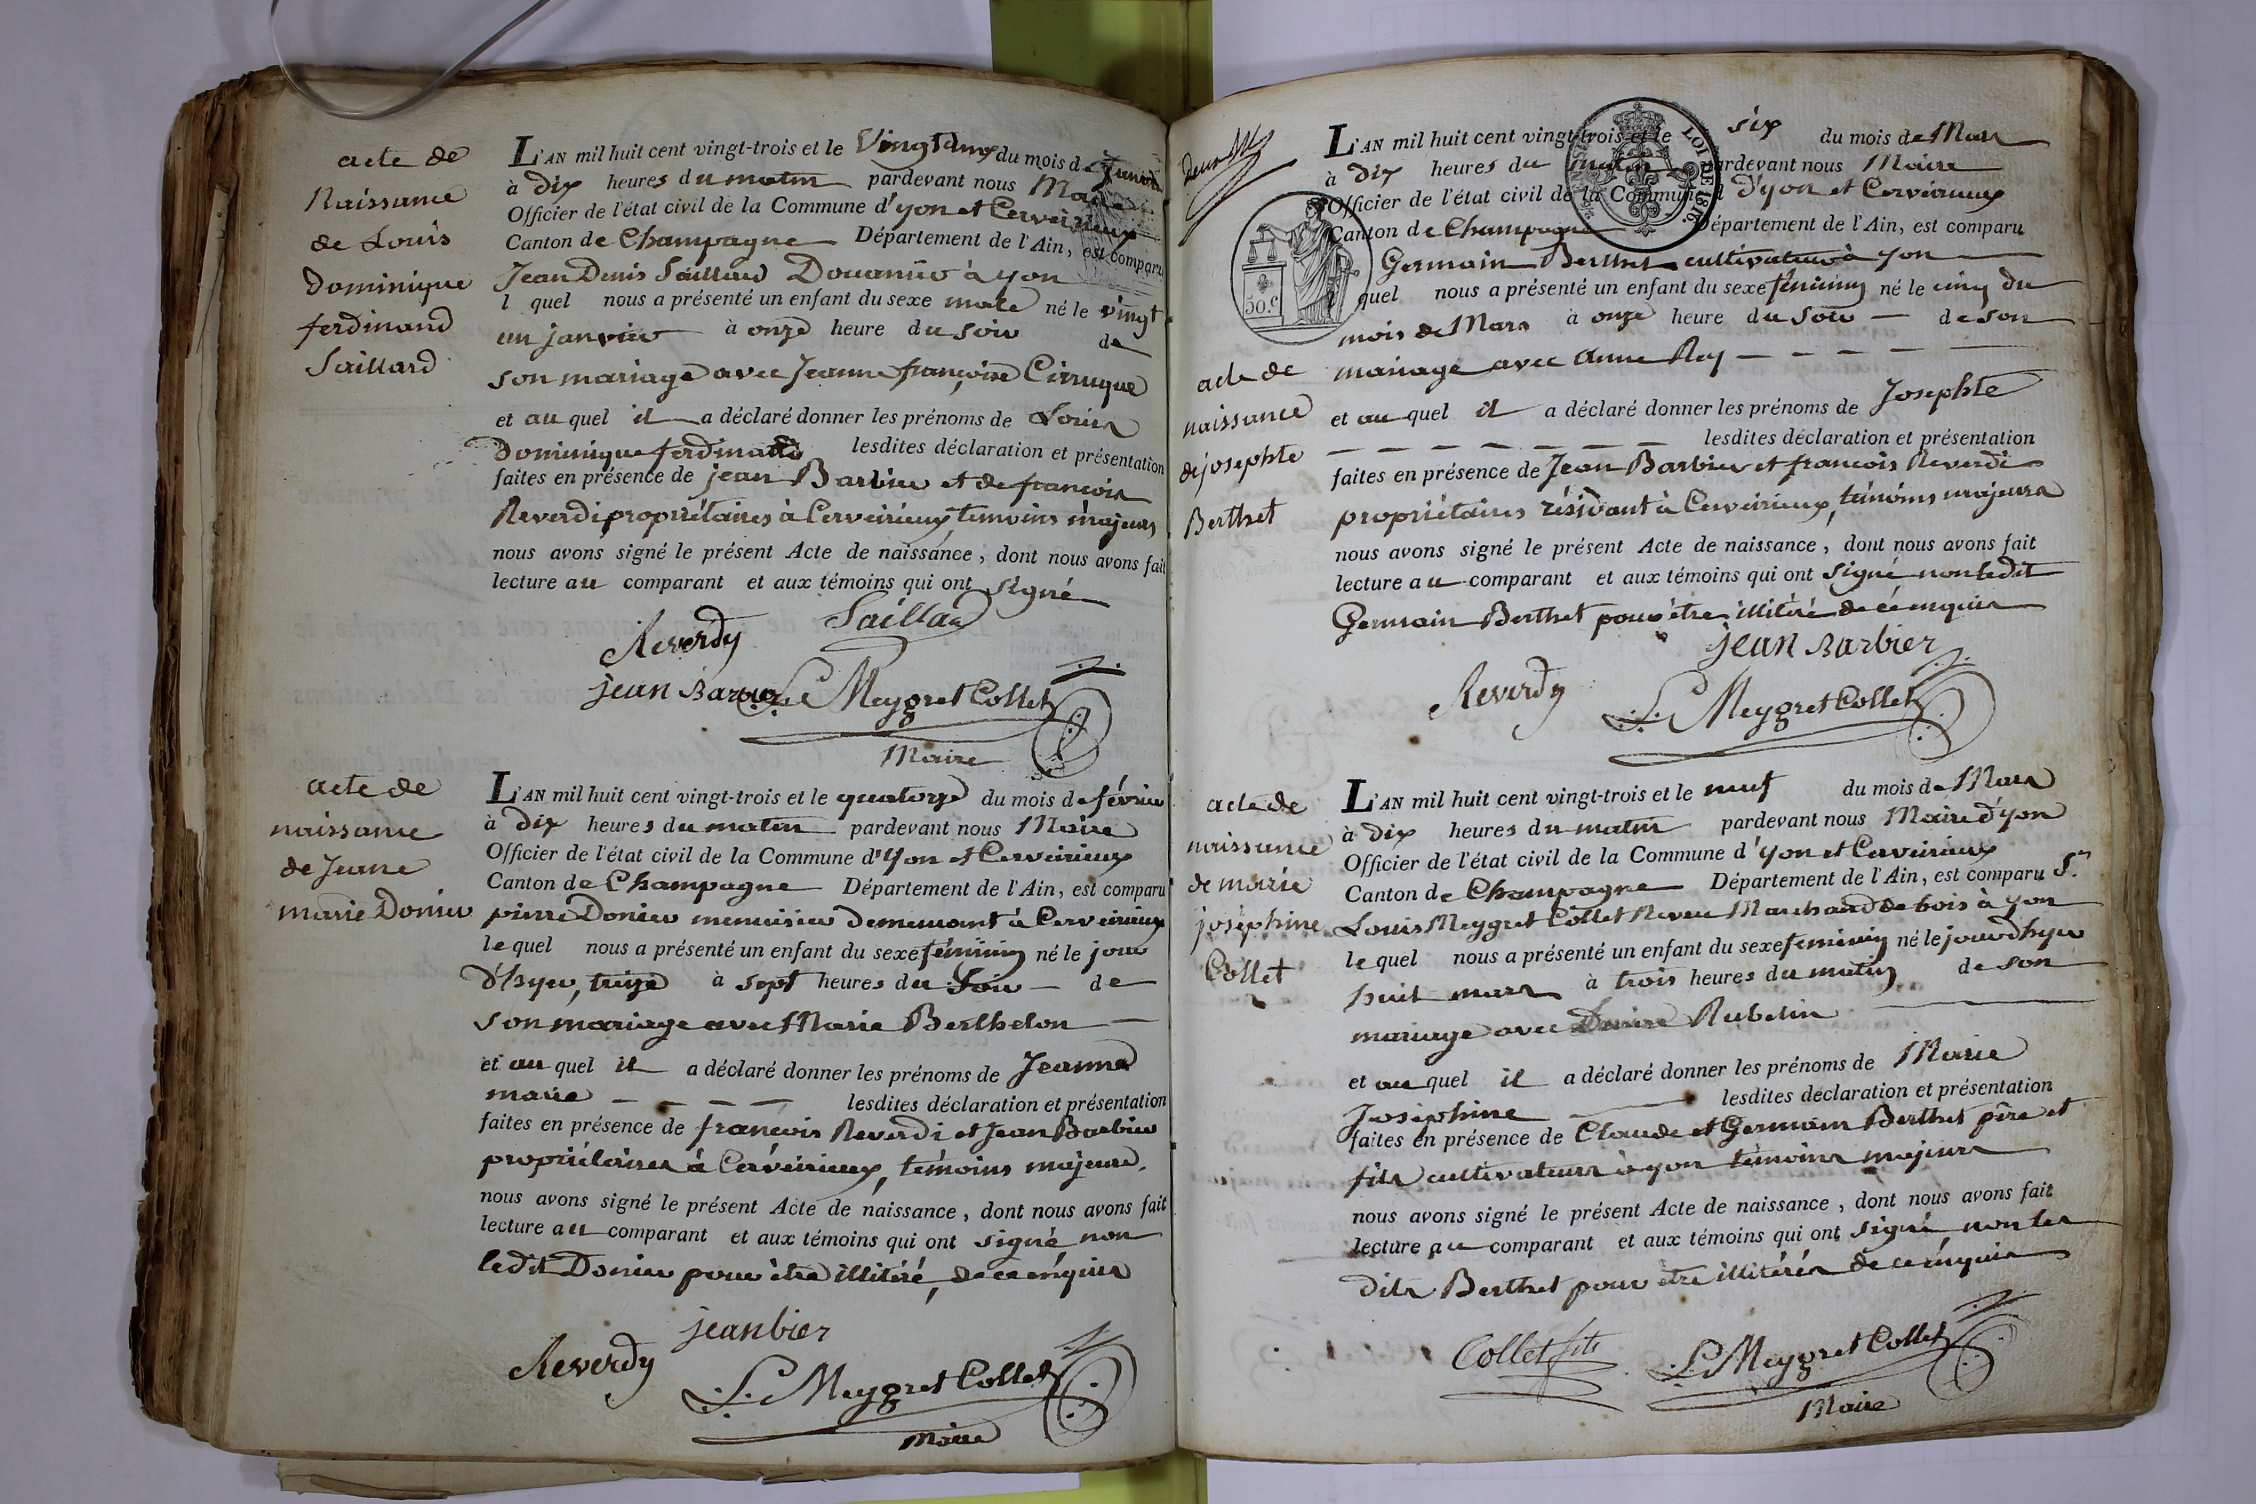 acte de
Naissance
de Louis
Dominique
ferdinand
Saillard
L'AN mil huit cent vingt-trois et le Vingt deux du mois de Janvier
à dix heures du matin pardevant nous Maire
Officier de l'état civil de la Commune d'yon et Cerveirieux
Canton de Champagne Département de l'Ain, est comparu
Jean Denis Saillard Douanier à yon
l quel nous a présenté un enfant du sexe male né le vingt
un janvier à onze heure du soir de
son mariage avec Jeanne françoise Cirruque
et au quel il a déclaré donner les prénoms de Louis
Dominique ferdinand lesdites déclaration et présentation
faites en présence de jean Barbier et de françois
Reverdi propriétaires à Cerveirieux, temoins majeurs
nous avons signé le présent Acte de naissance, dont nous avons fait
lecture au comparant et aux témoins qui ont signé
Saillard
Reverdy
jean Barbier L. Meygret Collet
Maire
acte de
naissance
de Jeane
marie Donier
L'AN mil huit cent vingt-trois et le quatorze du mois de février
à dix heures du matin pardevant nous Maire
Officier de l'état civil de la Commune d'Yon et Cerveirieux
Canton de Champagne Département de l'Ain, est comparu
pierre Donier menuisier demeurant à Cerveirieux
le quel nous a présenté un enfant du sexe féminin né le jour
d'hyer, treize à sept heures du Soir de
son mariage avec Marie Berthelon
et au quel il a déclaré donner les prénoms de Jeanne
marie lesdites déclaration et présentation
faites en présence de françois Reverdi et Jean Barbier
propriétaires à Cerveirieux, témoins majeurs.
nous avons signé le présent Acte de naissance, dont nous avons fait
lecture au comparant et aux témoins qui ont signé non
ledit Donier pour être illitéré, de ce enquis
jeanbier
Reverdy
L. Meygret Collet
Maire
LOI DE 1816.
50.c
acte de
naissance
de josephte
Berthet
L'AN mil huit cent vingt-trois et le six du mois de Mars
à dix heures du matin pardevant nous Maire
Officier de l'état civil de la Commune d'yon et Cerveirieux
Canton de Champagne Département de l'Ain, est comparu
Germain Berthet cultivateur à yon
quel nous a présenté un enfant du sexe féminin né le cinq du
mois de Mars à onze heure du soir de son
mariage avec Anne Rey
et au quel il a déclaré donner les prénoms de Josephte
lesdites déclaration et présentation
faites en présence de Jean Barbier et francois Reverdi
propriétaires résidant à Cerveirieux, témoins majeurs
nous avons signé le présent Acte de naissance, dont nous avons fait
lecture au comparant et aux témoins qui ont signé non ledit
Germain Berthet pour être illitéré de ce enquis
jean Barbier
Reverdy
L. Meygret Collet
acte de
naissance
de marie
joséphine
Collet
L'AN mil huit cent vingt-trois et le neuf du mois de Mars
à dix heures du matin pardevant nous Maire d'yon
Officier de l'état civil de la Commune d'yon et Cerveirieux
Canton de Champagne Département de l'Ain, est comparu Sr
Louis Meygret Collet Neveu Marchand de bois à yon
le quel nous a présenté un enfant du sexe feminin né le jour d'hyer
huit mars à trois heures du matin de son
mariage avec Denise Rubelin
et au quel il a déclaré donner les prénoms de Marie
Joséphine lesdites déclaration et présentation
faites en présence de Claude et Germain Berthet père et
fils cultivateurs à yon témoins majeurs
nous avons signé le présent Acte de naissance, dont nous avons fait
lecture au comparant et aux témoins qui ont signé non les
dits Berthet pour être illitérés de ce enquis
Collet fils
L. Meygret Collet
Maire